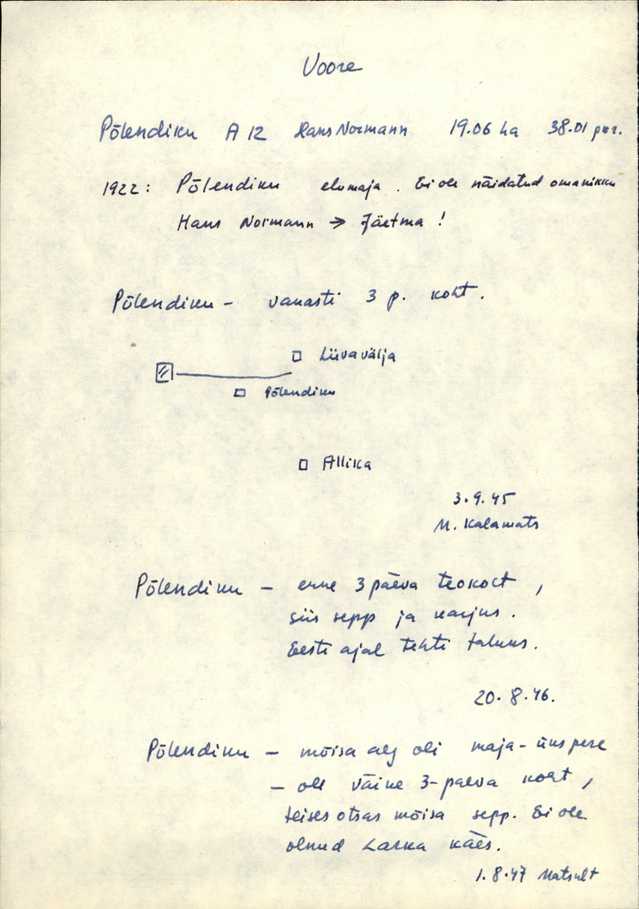 Voore
Põlendiku A 12 Hans Normann 19.06 ha 38.01
1922: Põlendiku elumaja. Ei ole näidatud omanikku
Hans Normann → Jäetma!
Põlendiku - vanasti 3 p. koht.
Liivavälja
Põlendiku
Allika
3.9.45
M. Kalamats
Põlendiku - enne 3 päeva teokoht,
siis sepp ja karjus.
Eesti ajal tehti taluks.
20.8.46.
Põlendiku - mõisa aeg oli maja - üks pere
- oli väike 3-päeva koht,
teises otsas mõisa sepp. Ei ole
olnud käes.
1.8.47